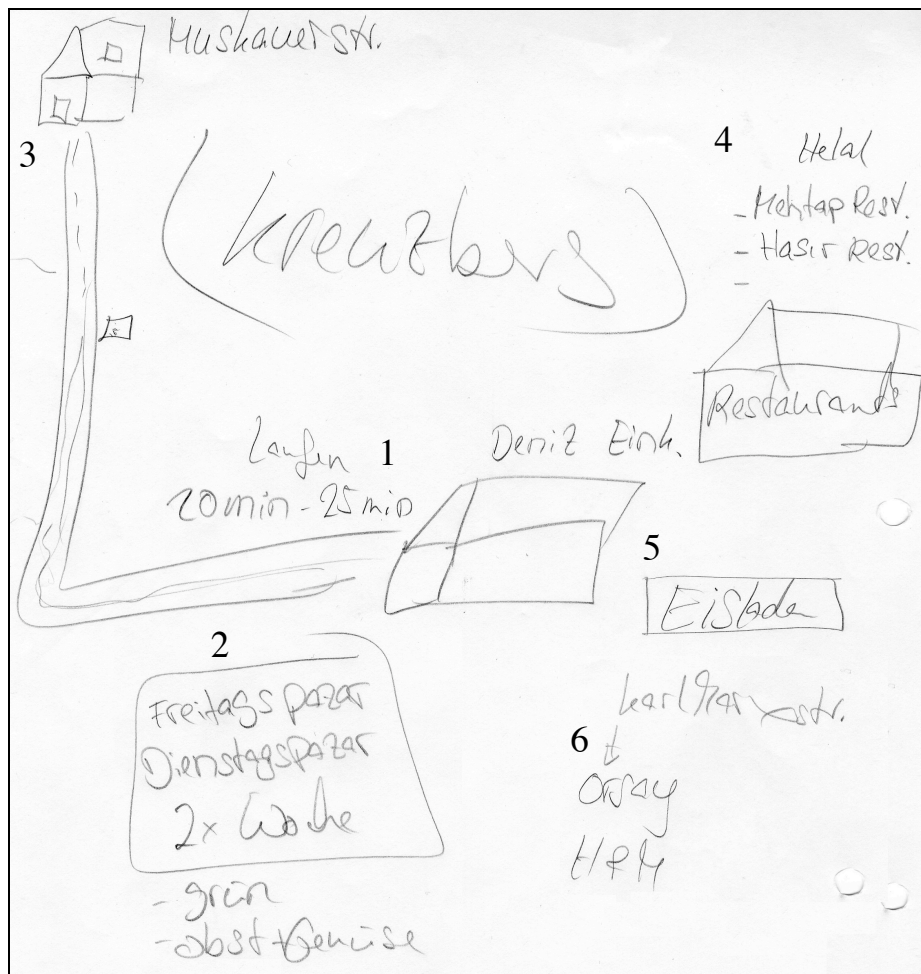 Muskauer Str.
3
4
Helal
- Mehtap Rest.
- Hasır Rest.
-
(Kreuzberg)
s
Restaurants
Laufen
1
20min - 25min
Deniz Eink.
5
Eisladen
2
Freitagspazar
Dienstagspazar
2x Woche
- grün
- obst + Gemüse
Karl Marx str.
6
Orsay
H & M